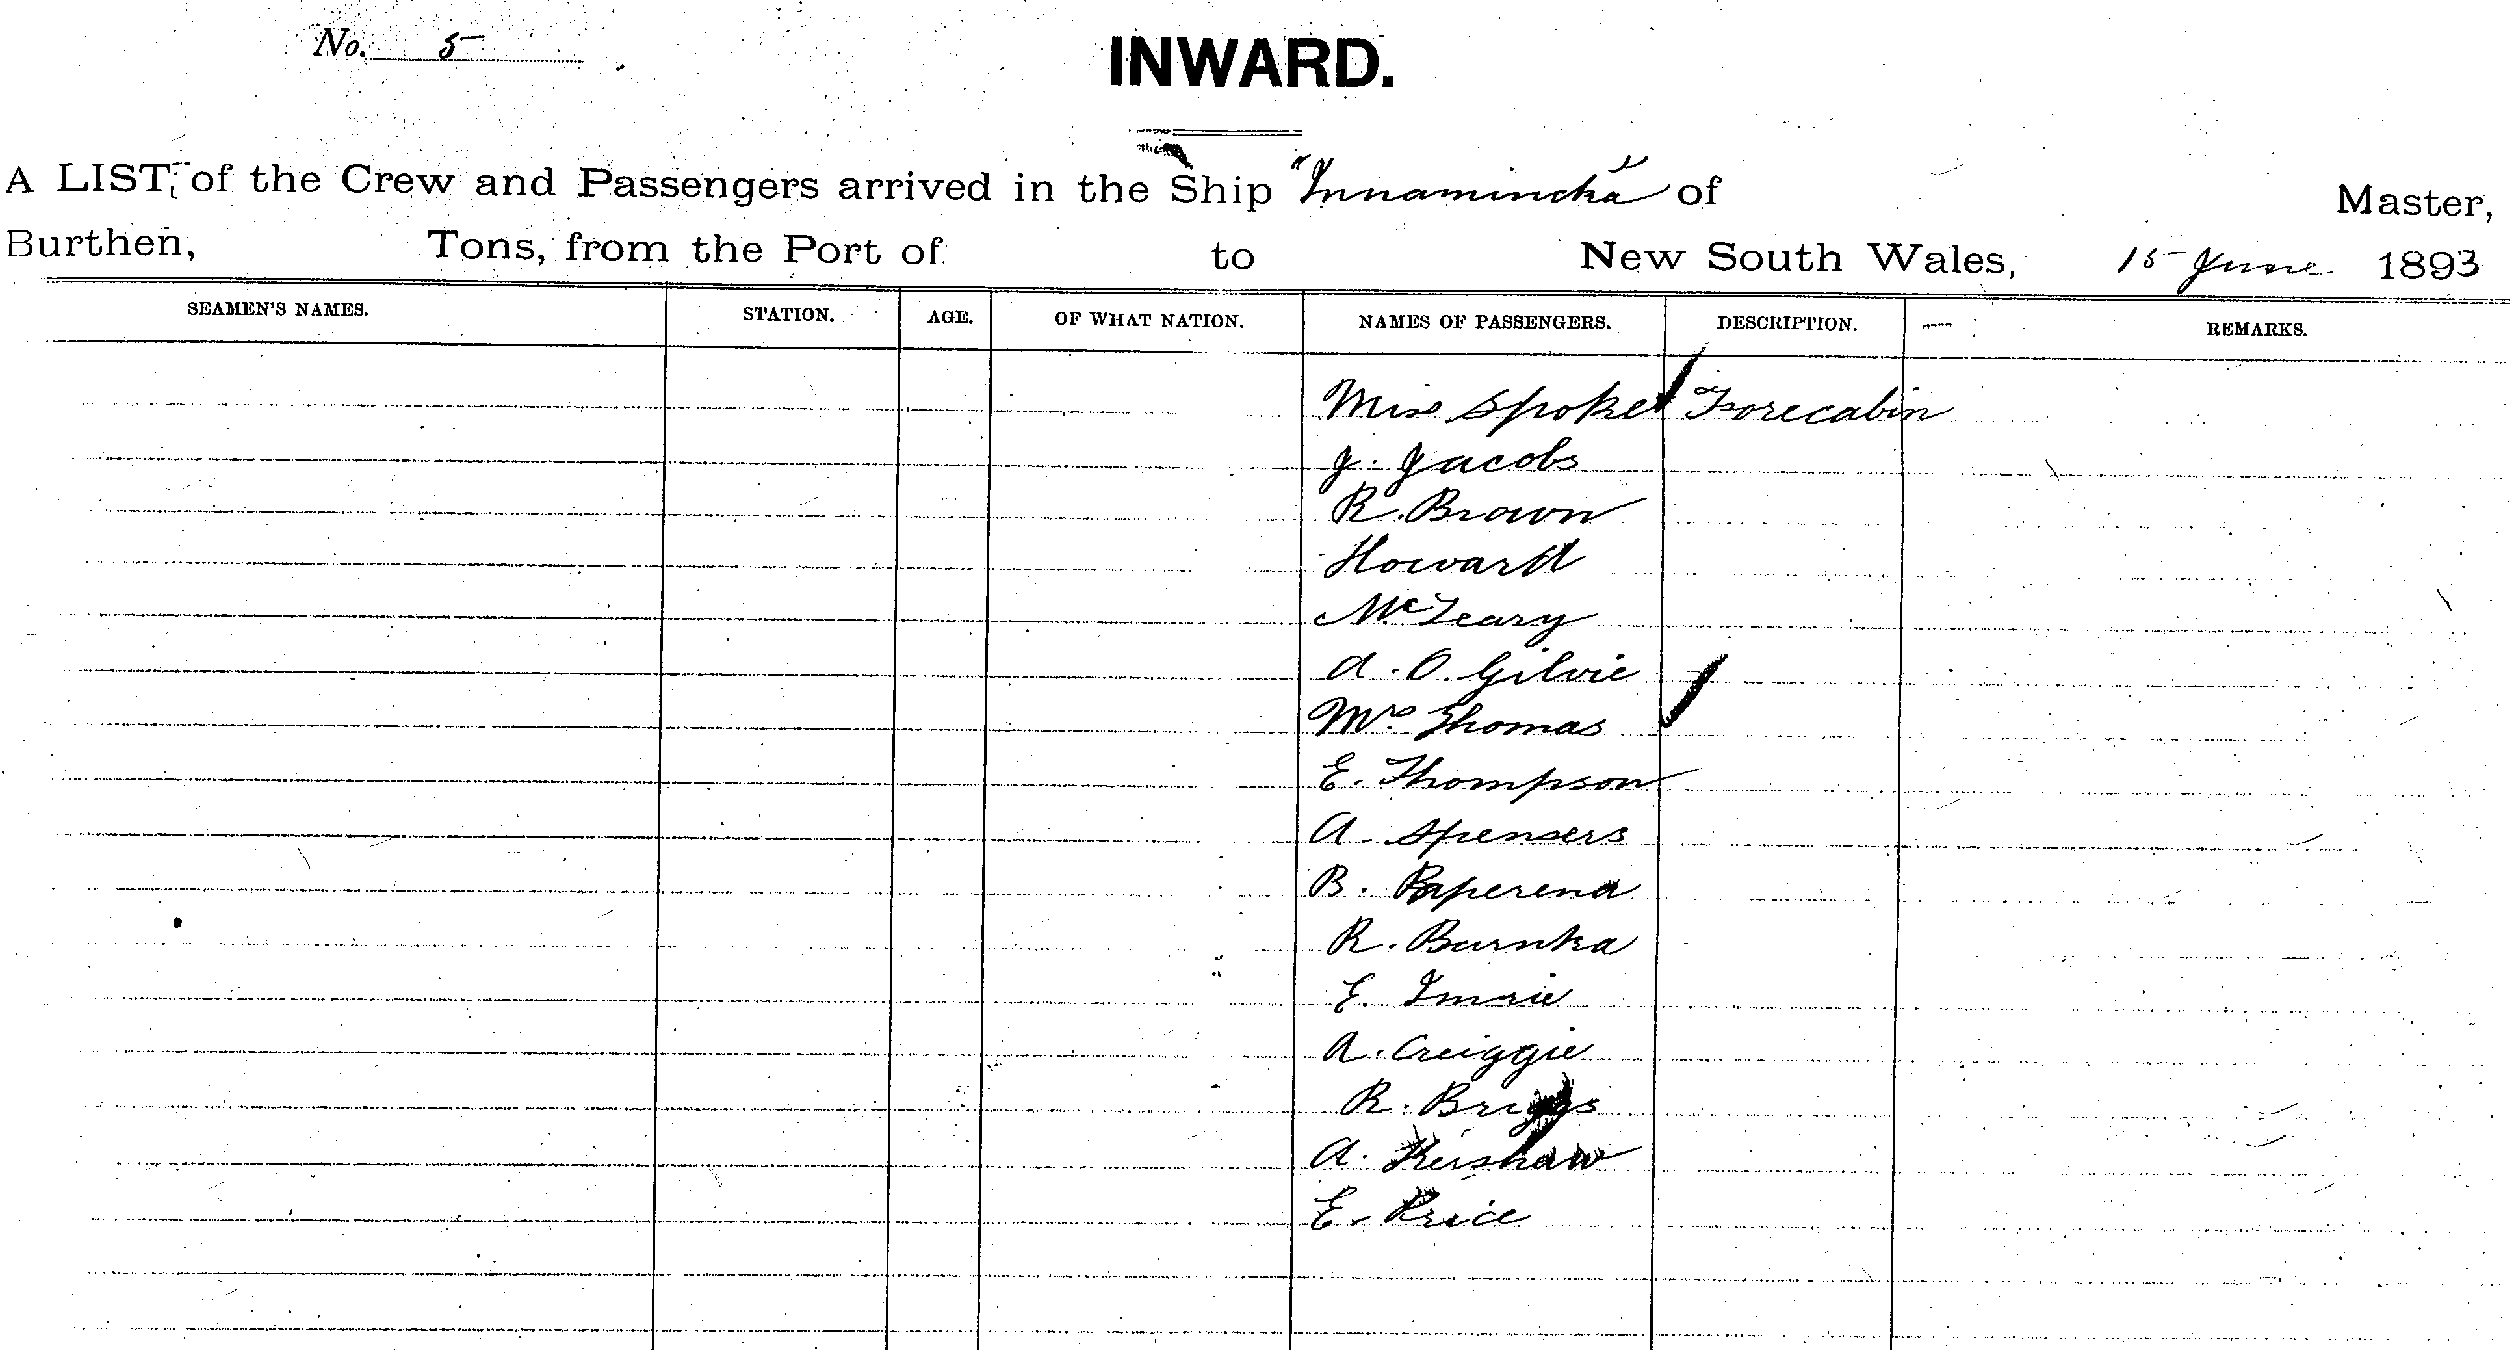 No. 5
INWARD.
A LIST, of the Crew and Passengers arrived in the Ship "Innamincka" of Master,
Burthen, Tons, from the Port of to New South Wales, 15 June 1893
SEAMEN'S NAMES. STATION. AGE. OF WHAT NATION. NAMES OF PASSENGERS. DESCRIPTION. REMARKS.
Miss Spoke Forecabin
J. Jacobs
R. Brown
Howard
McLeary
A. O. Gilvie
Mrs Thomas
E. Thompson
A. Spensers
B. Paperena
R. Burnka
E. Imrie
A. Creiggie
R. Briggs
A. Kershaw
E. Price